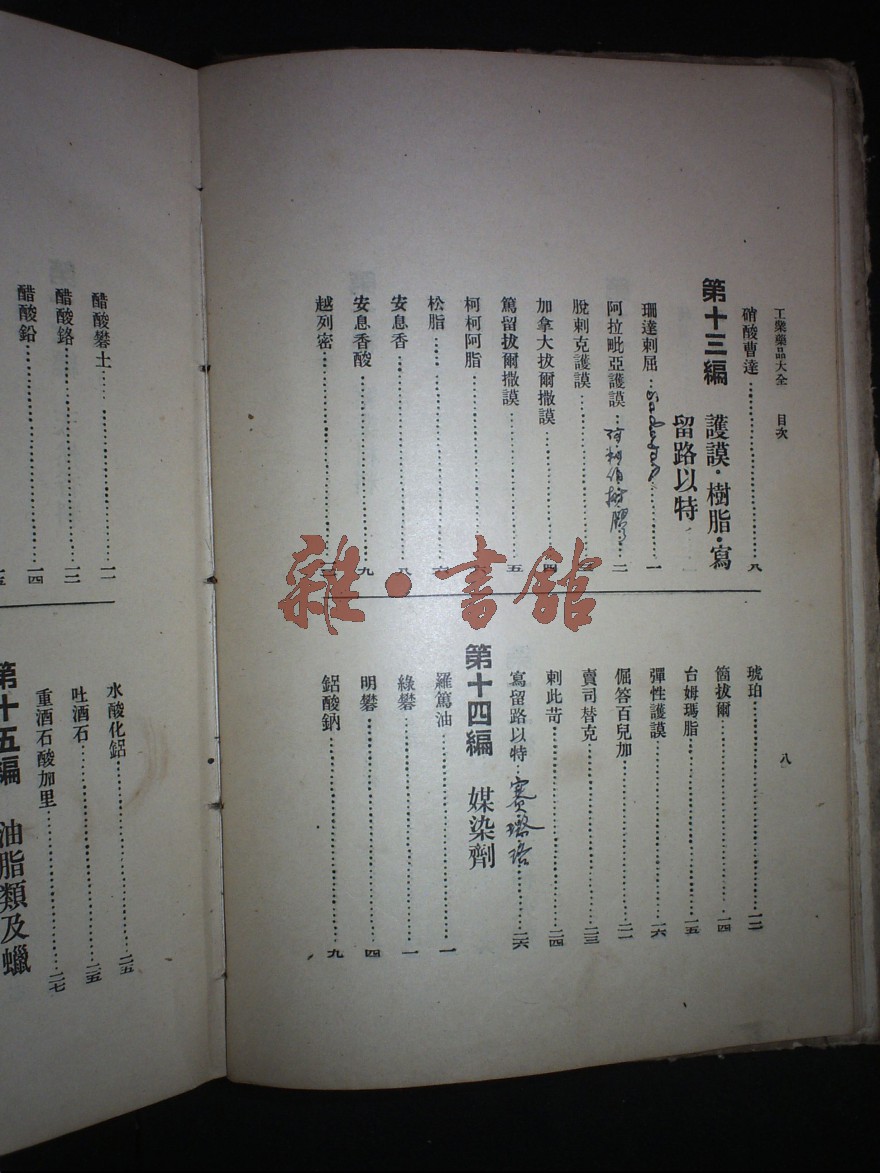 工業藥品大全 目次
八
硝酸曹達 八
第十三編 護謨·樹脂·寫
留路以特
珊達剌屈 一
阿拉毗亞護謨 阿拉伯樹膠 二
脫剌克護謨
加拿大拔爾撒謨 四
篤留拔爾撒謨 五
柯柯阿脂 六
松脂 六
安息香 八
安息香酸 九
越列密
琥珀 一二
箇拔爾 一四
台姆瑪脂 一五
彈性護謨 一六
倔答百兒加 二二
賣司替克 二三
剌此苛 二四
寫留路以特 賽璐珞 二六
第十四編 媒染劑
羅篤油 一
綠礬 一
明礬 四
鋁酸鈉 九
醋酸礬土 一一
醋酸鉻 一二
醋酸鉛 一四
一五
水酸化鋁 二五
吐酒石 二五
重酒石酸加里 二七
第十五編 油脂類及蠟
雜·書館